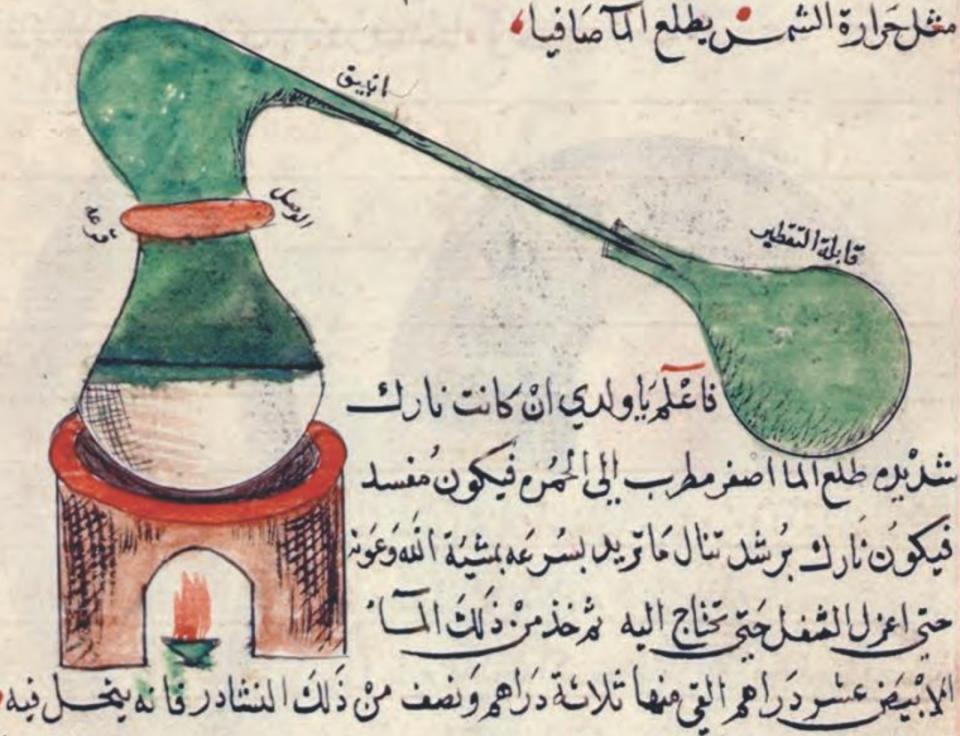 مثل حرارة الشمس يطلع المآ صافيا
انبيق
الوصل
قرعه
قابلة التقطير
فاعْلم يَا ولدي انْ كانت نارك
شديْده طلع الما اصفر مطرب إلى الحُمره فيكون مُفسد
فيكوُن نَارك برُشد تنال مَا تريد بسُرعَه بمشيّة اللّه وَعَونه
حتى اعزل الثفل حَتى تحتاج اليه ثم خذ منْ ذَلكَ المآءُ
الابْيَض عشر دَراهم القي منها ثلاثة دَراهم وَنصف منْ ذَلكَ النشادر فانه ينحل فيه